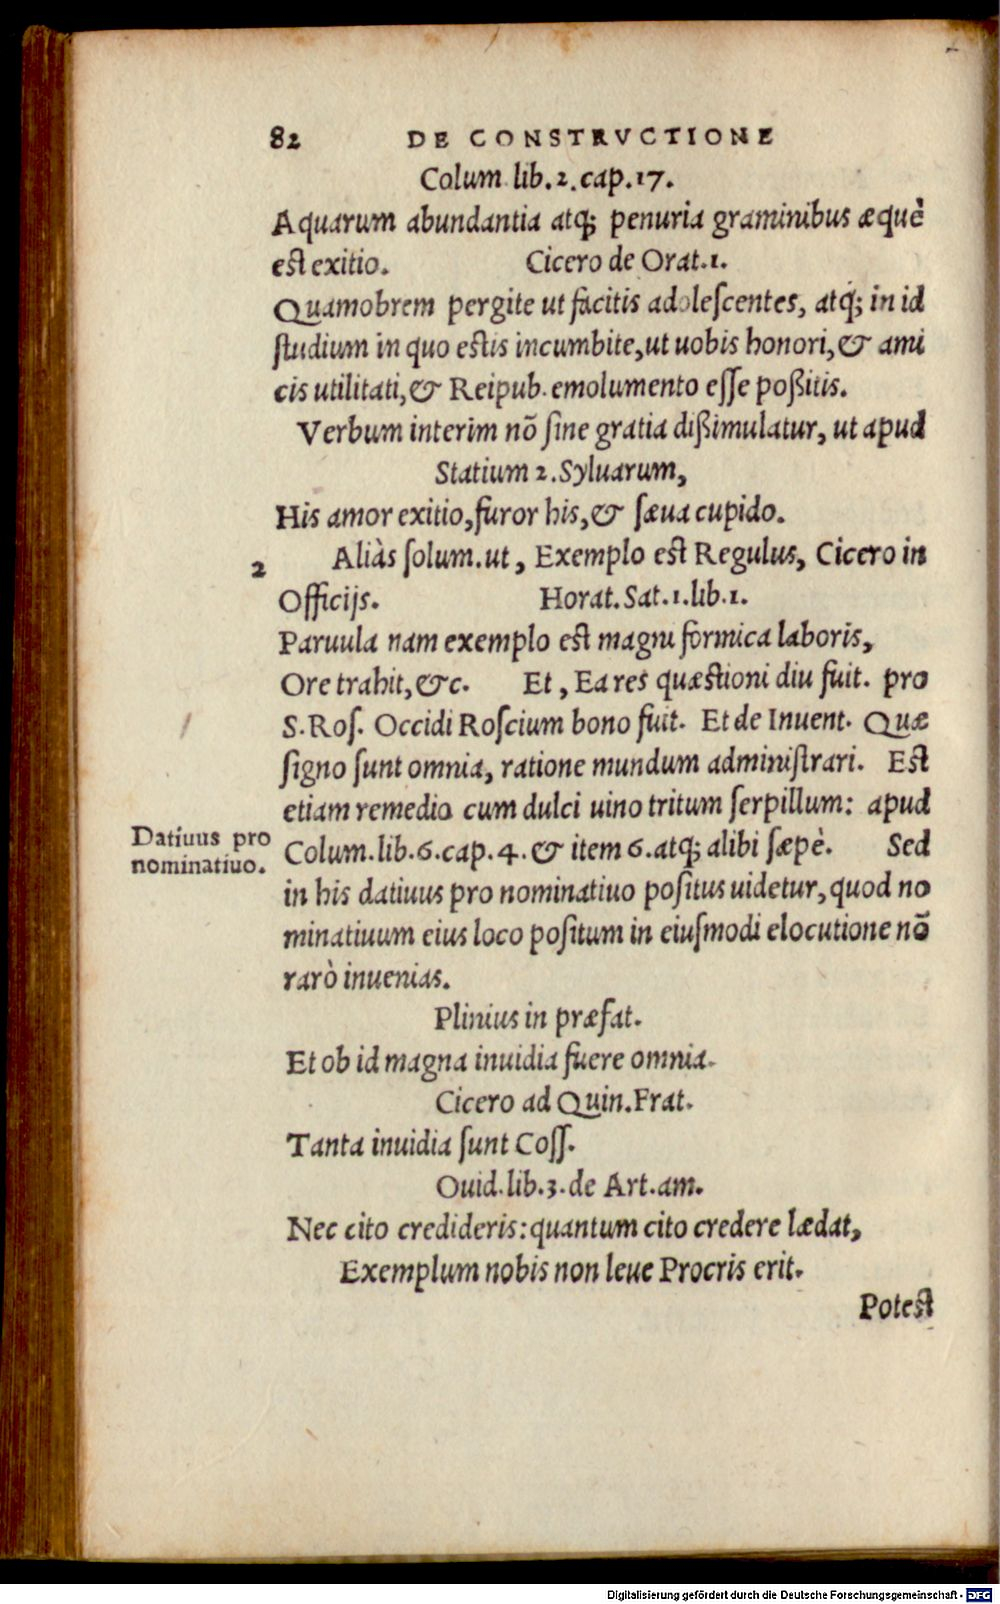 82 DE CONSTRVCTIONE
Colum. lib. 2. cap. 17.
Aquarum abundantia atq; penuria graminibus æquè
est exitio. Cicero de Orat. 1.
Quamobrem pergite ut facitis adolescentes, atq; in id
studium in quo estis incumbite, ut uobis honori, & ami
cis utilitati, & Reipub. emolumento esse poßitis.
Verbum interim nō sine gratia dißimulatur, ut apud
Statium 2. Syluarum,
His amor exitio, furor his, & sæua cupido.
2 Aliàs solum. ut, Exemplo est Regulus, Cicero in
Officijs. Horat. Sat. 1. lib. 1.
Paruula nam exemplo est magni formica laboris,
Ore trahit, &c. Et, Ea res quæstioni diu fuit. pro
S. Ros. Occidi Roscium bono fuit. Et de Inuent. Quæ
signo sunt omnia, ratione mundum administrari. Est
etiam remedio cum dulci uino tritum serpillum: apud
Datiuus pro
nominatiuo.
Colum. lib. 6. cap. 4. & item 6. atq; alibi sæpè. Sed
in his datiuus pro nominatiuo positus uidetur, quod no
minatiuum eius loco positum in eiusmodi elocutione nō
rarò inuenias.
Plinius in præfat.
Et ob id magna inuidia fuere omnia.
Cicero ad Quin. Frat.
Tanta inuidia sunt Coss.
Ouid. lib. 3. de Art. am.
Nec cito credideris: quantum cito credere lædat,
Exemplum nobis non leue Procris erit.
Potest
Digitalisierung gefördert durch die Deutsche Forschungsgemeinschaft - DFG